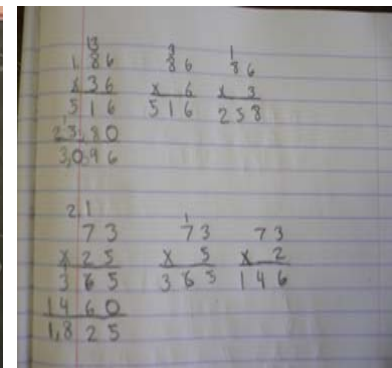 13
86
x 36
516
2580
3,096
3
86
x 6
516
1
86
x 3
258
21
73
x 25
365
1460
1,825
1
73
x 5
365
73
x 2
146